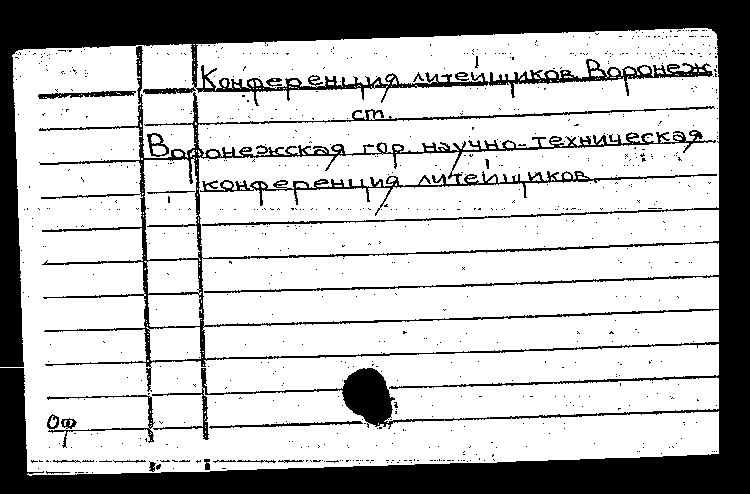 Конференция литейщиков Воронеж
ст.
Воронежская гор. научно-техническая
конференция литейщиков.
Оф